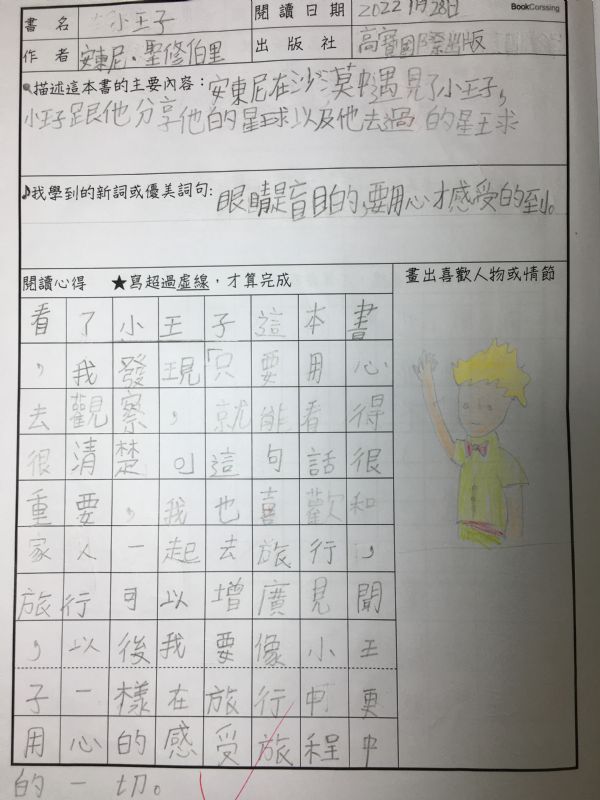 BookCorssing
書名 小王子 閱讀日期 2022 1月28日
作者 安東尼·聖修伯里 出版社 高寶國際出版
描述這本書的主要內容：安東尼在沙漠中遇見了小王子，
小王子跟他分享他的星球以及他去過的星球
♪我學到的新詞或優美詞句：眼睛是盲目的，要用心才感受的到。
閱讀心得 ★寫超過虛線，才算完成 畫出喜歡人物或情節
看了小王子這本書
，我發現「只要用心
去觀察，就能看得
很清楚」這句話很
重要，我也喜歡和
家人一起去旅行，
旅行可以增廣見聞
，以後我要像小王
子一樣在旅行中更
用心的感受旅程中
的一切。